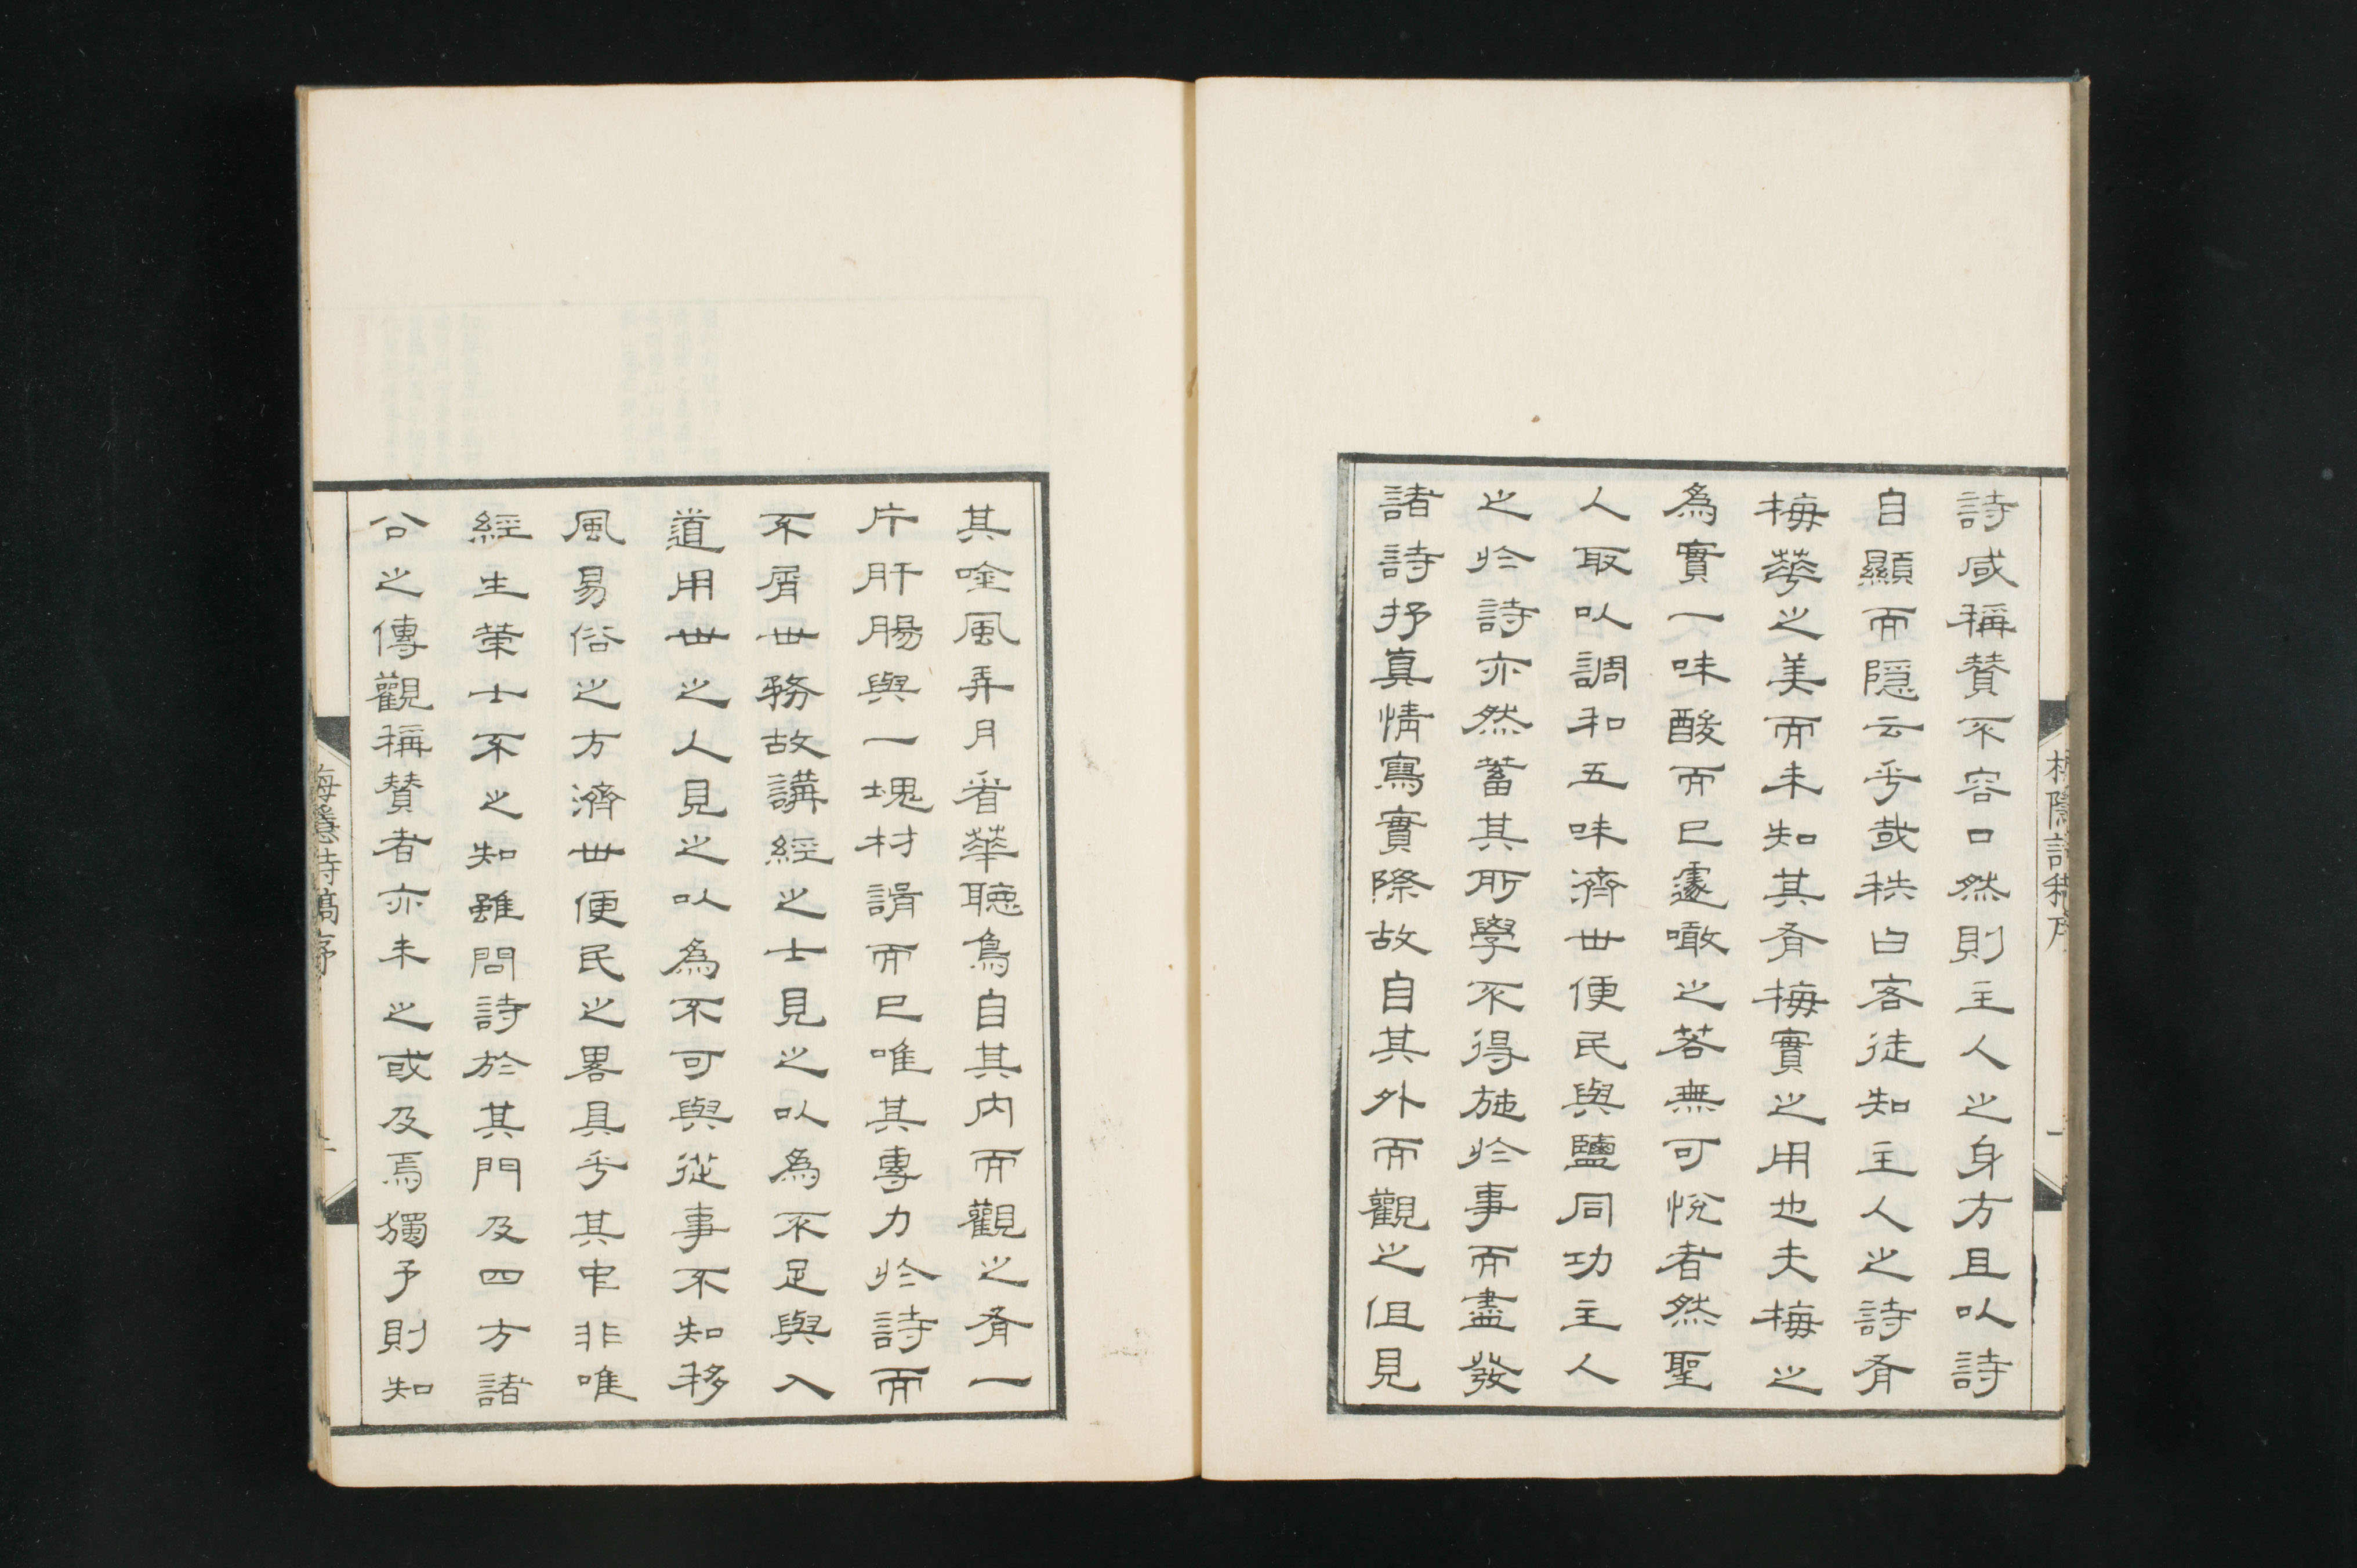 詩咸稱賛不容口然則主人之身方且以詩
自顯而隱云乎哉秩白客徒知主人之詩有
梅華之美而未知其有梅實之用也夫梅之
為實一味酸而已遽噉之若無可悅者然聖
人取以調和五味濟世便民與鹽同功主人
之於詩亦然蓄其所學不得施於事而盡發
諸詩抒真情寫實際故自其外而觀之但見
其唫風弄月看華聽鳥自其內而觀之有一
片肝腸與一塊材諝而已唯其專力於詩而
不屑世務故講經之士見之以為不足與入
道用世之人見之以為不可與從事不知移
風易俗之方濟世便民之畧具乎其中非唯
經生策士不之知雖問詩於其門及四方諸
公之傳觀稱賛者亦未之或及焉獨予則知
梅隱詩稿序
梅隱詩稿序